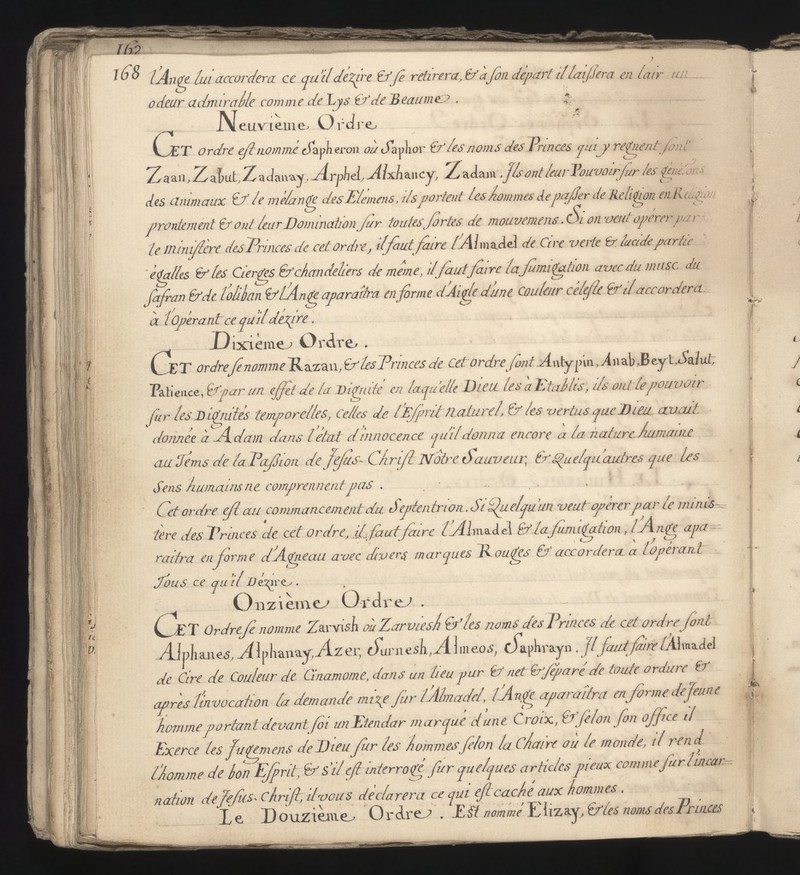 162
168 l'Ange lui accordera ce qu'il dézire & se retirera, & à son départ il laissera en l'air un
odeur admirable comme de Lys & de Beaume.
Neuvième Ordre
CET ordre est nommé Sapheron où Saphor & les noms des Princes qui y regnent sont
Zaan, Zabut, Zadanay, Arphel, Alxhancy, Zadam. Ils ont leur Pouvoir sur les
des animaux & le mélange des Elémens, ils portent les hommes de passer de Religion en Religion
prontement & ont leur Domination sur toutes sortes de mouvemens. Si on veut opérer par
le ministère des Princes de cet ordre, il faut faire l'Almadel de Cire verte & lucide partie
égalles & les Cierges & chandeliers de même, il faut faire la fumigation avec du musc du
safran & de l'oliban & l'Ange aparaîtra en forme d'Aigle d'une couleur céleste & il accordera
à l'Opérant ce qu'il dézire.
Dixième Ordre.
CET ordre se nomme Razan, & les Princes de cet ordre sont Antypin, Anab, Beyt, Salut,
Patience, & par un effet de la Dignité en laqu'elle Dieu les a Etablis, ils ont le pouvoir
sur les Dignités temporelles, celles de l'Esprit naturel, & les vertus que Dieu avait
donnée à Adam dans l'état d'innocence qu'il donna encore à la nature humaine
au Téms de la Passion de Jesus-Christ Nôtre Sauveur, & Quelqu'autres que les
Sens humains ne comprennent pas.
Cet ordre est au commancement du Septentrion. Si Quelqu'un veut opérer par le minis=
tère des Princes de cét ordre, il faut faire l'Almadel & la fumigation, l'Ange apa=
raitra en forme d'Agneau avec divers marques Rouges & accordera à l'opérant
Tous ce qu'il Dézire.
Onzième Ordre.
CET Ordre se nomme Zarvish où Zarviesh & les noms des Princes de cet ordre sont
Alphanes, Alphanay, Azer, Surnesh, Almeos, Saphrayn. Il faut faire l'Almadel
de Cire de Couleur de Cinamome, dans un lieu pur & net & séparé de toute ordure &
après l'invocation la demande mize sur l'Almadel, l'Ange aparaîtra en forme de Jeune
homme portant devant soi un Etendar marqué d'une Croix, & selon son office il
Exerce les Jugemens de Dieu sur les hommes selon la Chaire où le monde, il rend
l'homme de bon Esprit, & s'il est interrogé sur quelques articles pieux comme sur l'incar=
nation de Jesus-Christ, il vous déclarera ce qui est caché aux hommes.
Le Douzième Ordre. Est nommé Elizay, & les noms des Princes